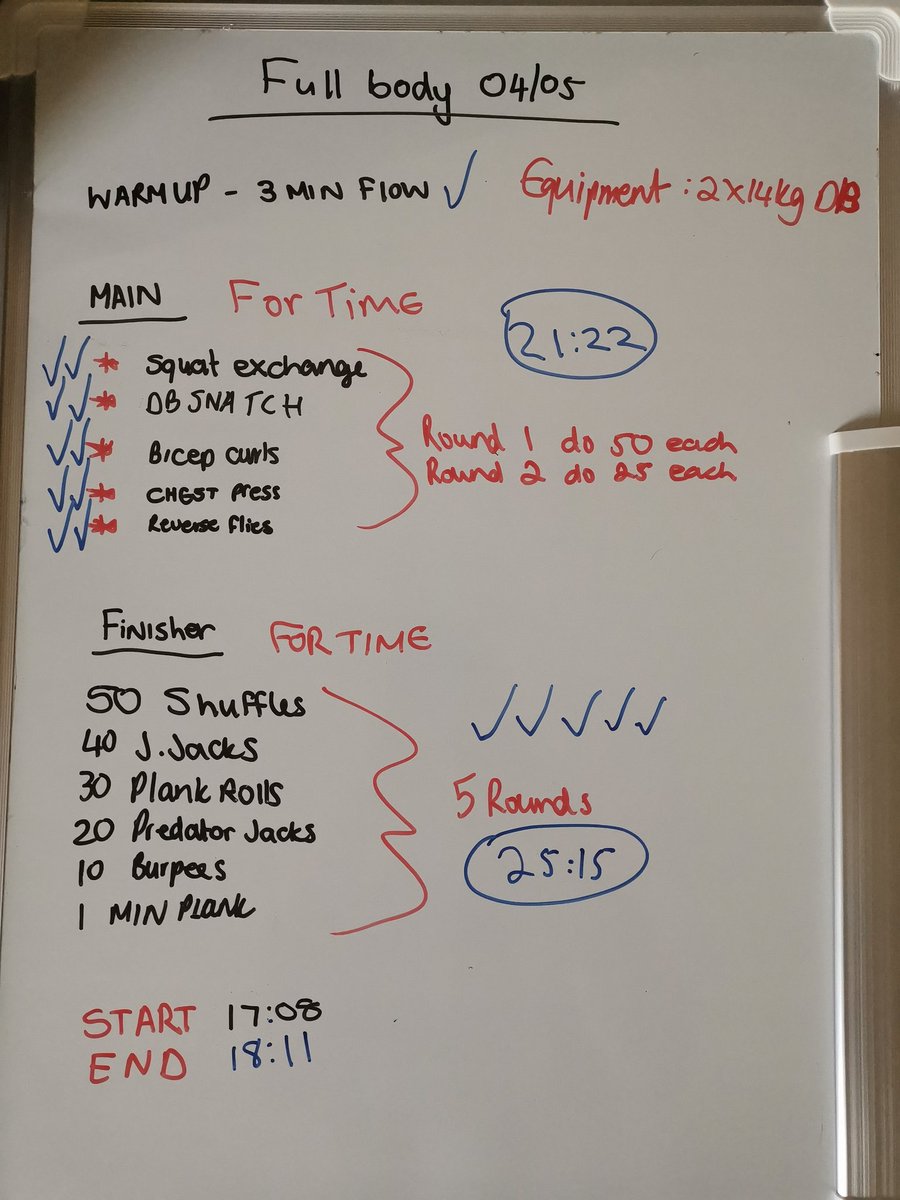 Full body 04/05
WARMUP - 3 MIN FLOW ✓ Equipment: 2x14kg DB
MAIN For TIME
21:22
✓✓* Squat exchange
✓✓* DB SNATCH
✓✓* Bicep curls
✓✓* CHEST Press
✓✓* Reverse flies
Round 1 do 50 each
Round 2 do 25 each
Finisher FOR TIME
50 Shuffles
40 J.Jacks
30 Plank Rolls
20 Predator Jacks
10 Burpees
1 MIN PLANK
✓✓✓✓✓
5 Rounds
25:15
START 17:08
END 18:11